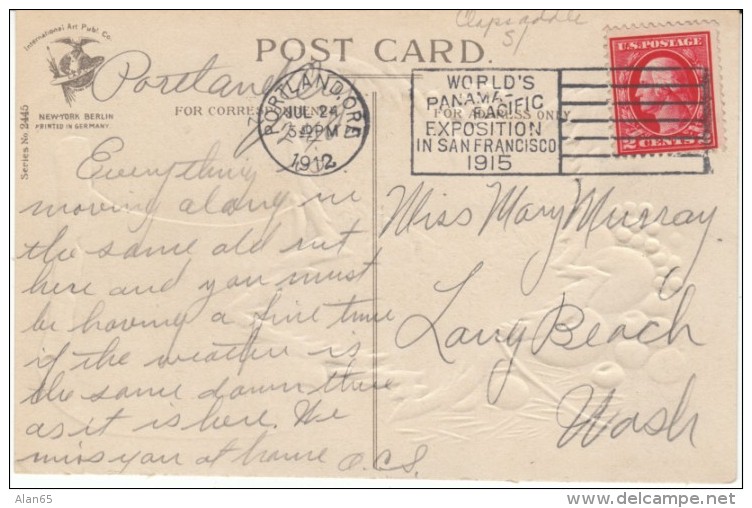 Clapsaddle
S/
International Art Publ. Co.
POST CARD.
U.S. POSTAGE
2 CENTS 2
NEW-YORK BERLIN
PRINTED IN GERMANY
Series No. 2445
Portland
FOR CORRESPONDENCE
FOR ADDRESS ONLY
PORTLAND, ORE.
JUL 24
5-PM
1912
WORLD'S
PANAMA-
PACIFIC
EXPOSITION
IN SAN FRANCISCO
1915
Everything
moving along in
the same old rut
here and you must
be having a fine time
if the weather is
the same down there
as it is here. We
miss you at home O.C.S.
Miss Mary Murray
Long Beach
Wash
Alan65
delcampe.net